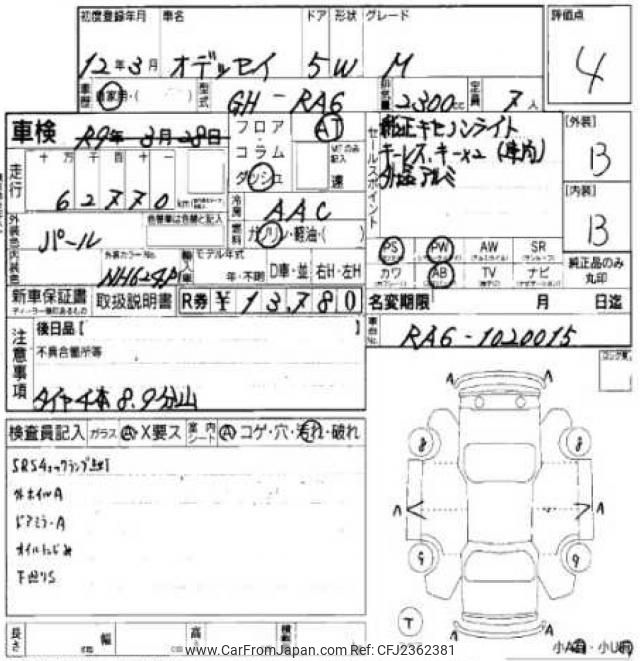 初度登録年月 車名 ドア 形状 グレード 評価点
12年3月 オデッセイ 5 W M 4
車歴 自家用・( ) 型式 GH-RA6 排気量 2300cc 定員 7人
車検 R9年 3月28日 フロア AT セールスポイント 純正キセノンライト [外装]
コラム キーレス、キー×2 B
ダッシュ 速 外品アルミ
走行 十 万 千 百 十 一 [内装]
62770 km 冷房 AAC B
外装色 パール 色替車は色替と記入 燃料 ガソリン・軽油・( )
PS PW AW SR 純正品のみ丸印
内装色 外装カラーNo. NH624P 輸入車 モデル年式 年・不明 D車・並 右H・左H カワ AB TV ナビ
新車保証書 取扱説明書 R券 ¥13,780 名変期限 月 日迄
車台No. RA6-1020015
注意事項 後日品[ ]
不具合箇所等
タイヤ4本 8.9分山
検査員記入 ガラス A・X要ス 室内シート A コゲ・穴・汚れ・破れ
SRSチェックランプ点灯
外ホイルA
ドアミラーA
オイルにじみ
下廻りS
A A
8 8
A A
9 9
T
A A
長さ cm 幅 cm 高さ cm
小A有・小U有
www.CarFromJapan.com Ref: CFJ2362381